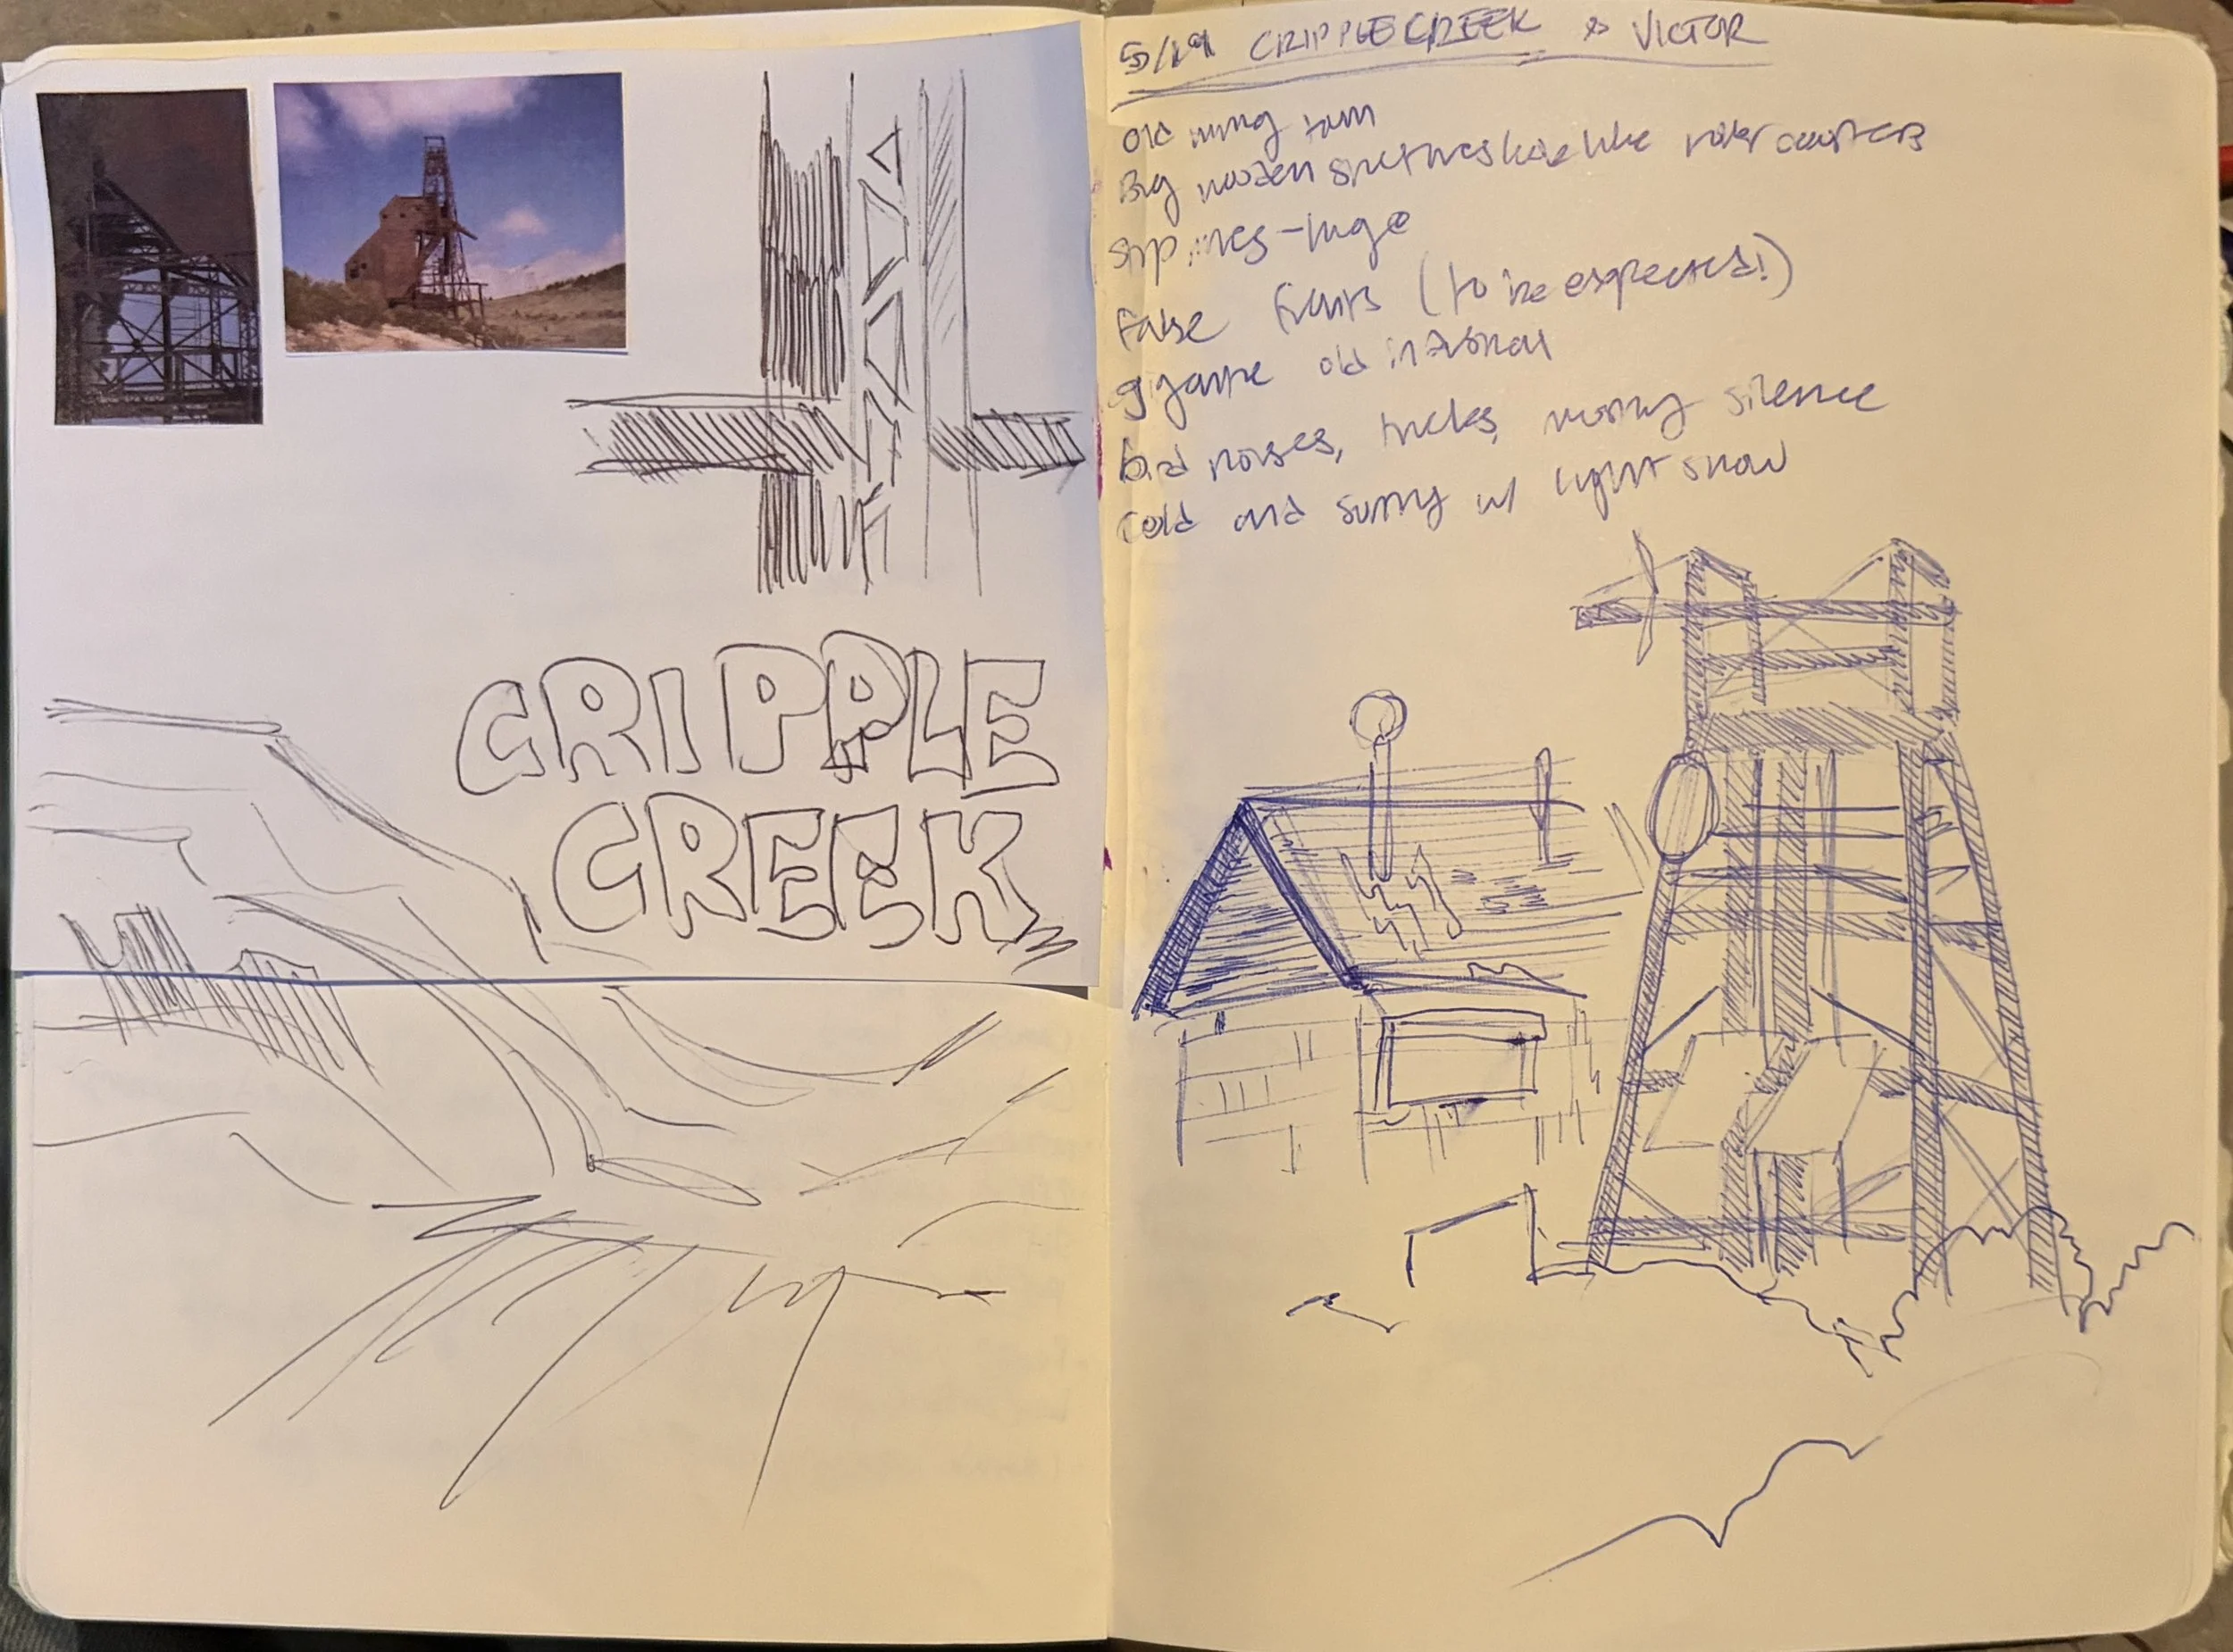 CRIPPLE
CREEK
5/19 CRIPPLE CREEK & VICTOR
old mining town
Big wooden structures look like roller coasters
strip mines - huge
False fronts (to be expected!)
gigantic old
bird noises, trucks, morning silence
Cold and sunny w/ light snow